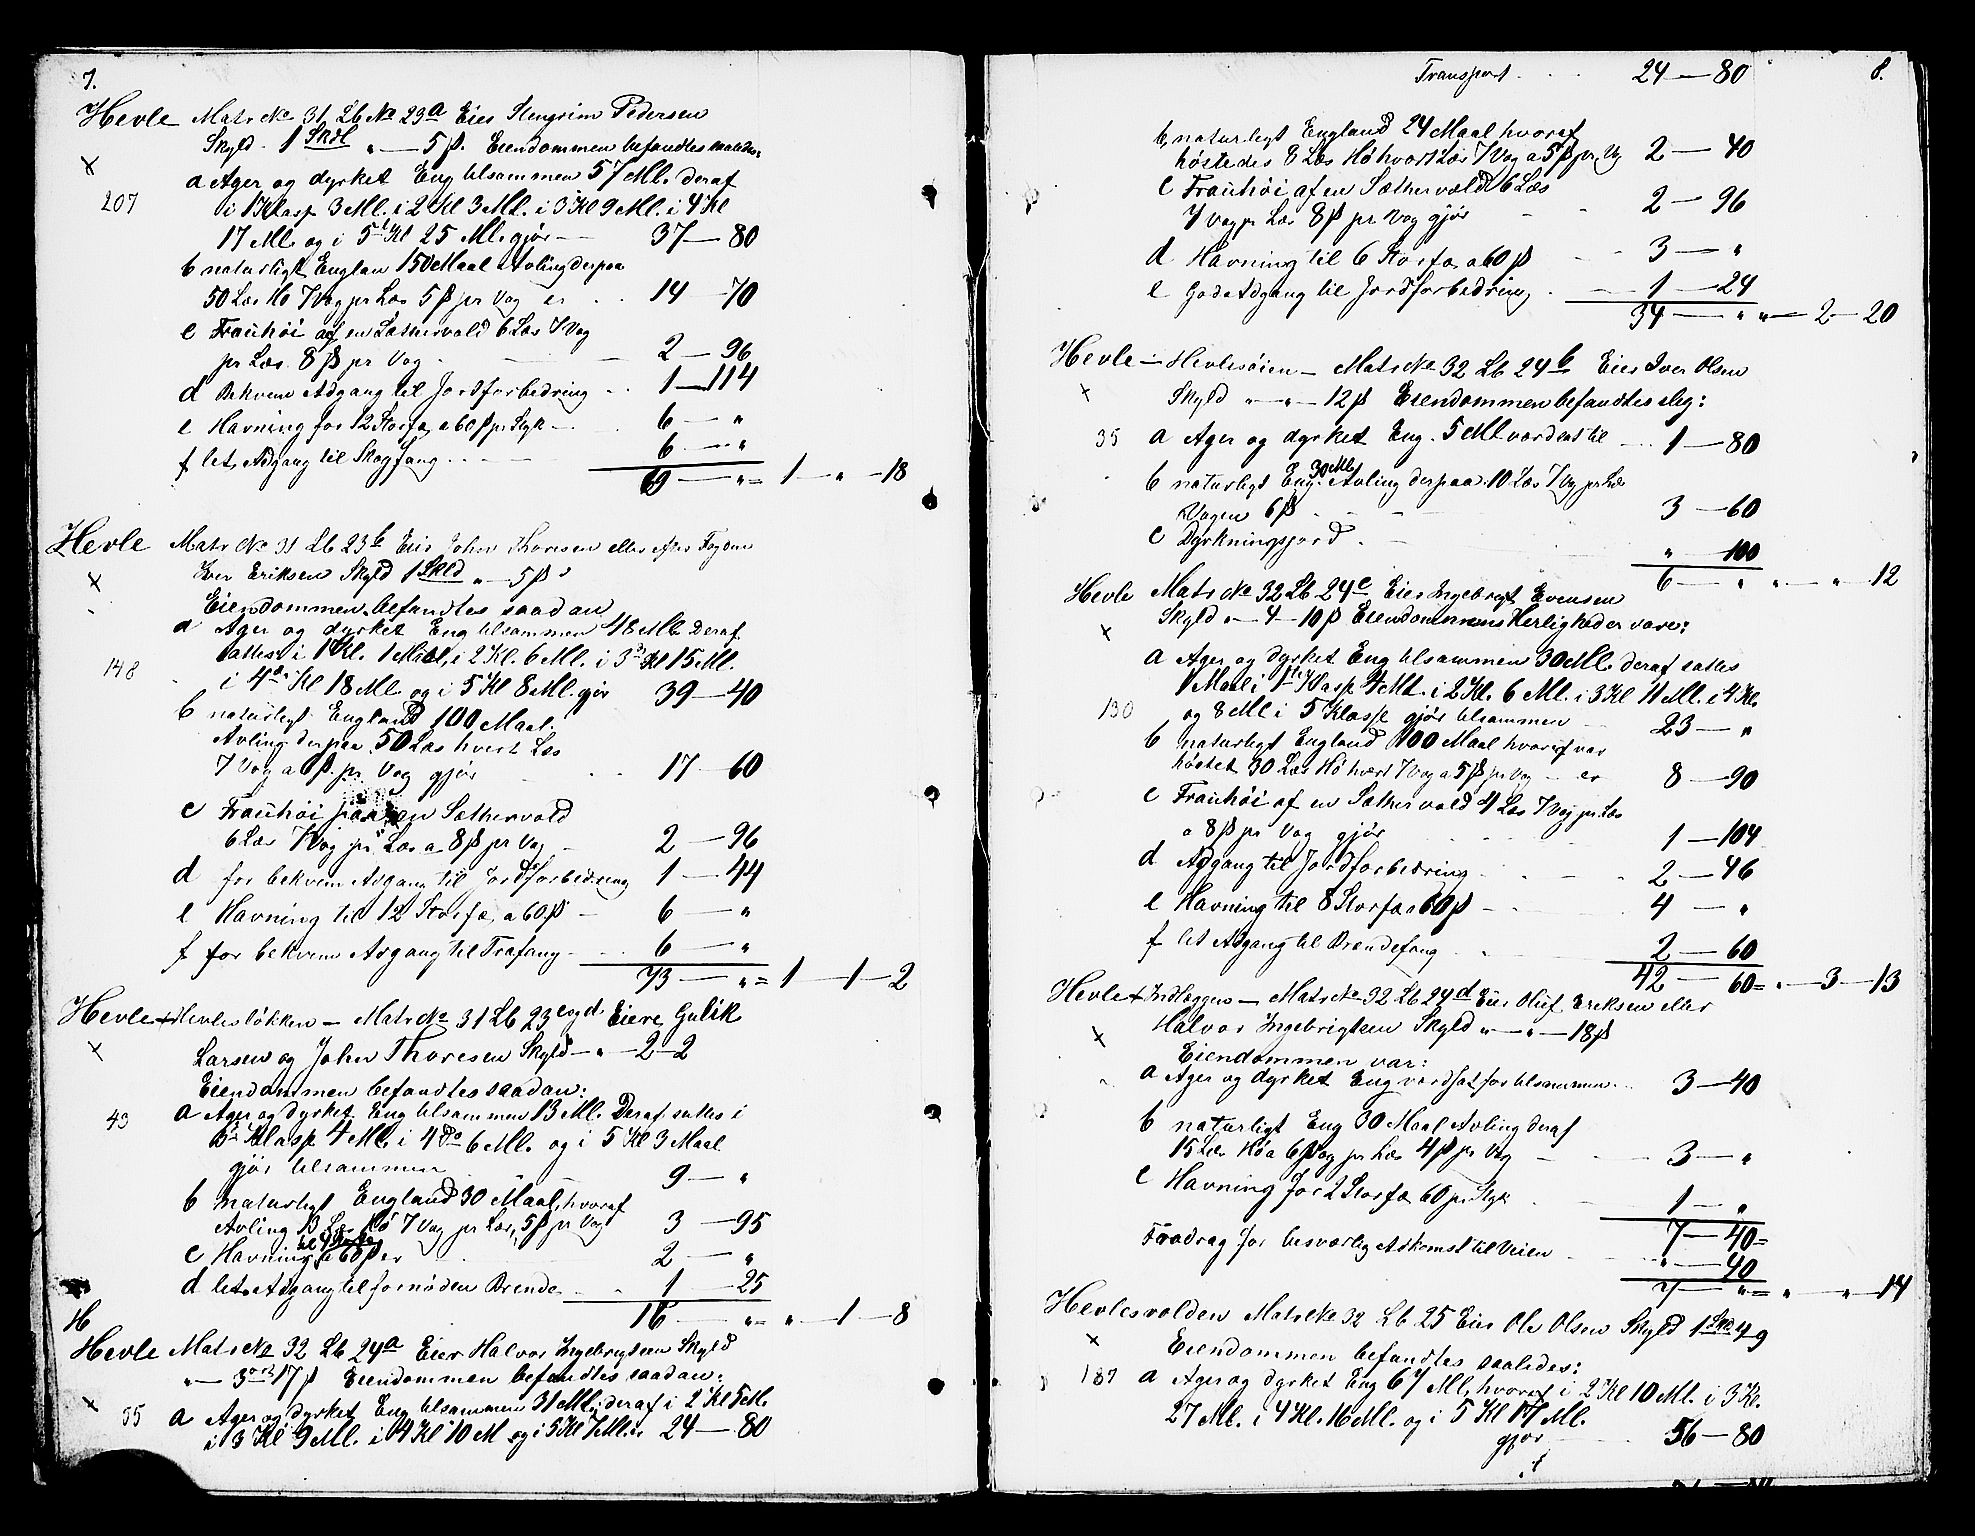 7.
Hevle Matr No 31 Lb No 23a Eier Stengrim Pedersen
Skyld. 1 Skdl „ — 5 ß. Eiendommen befandtes saaledes:
a Ager og dyrket Eng tilsammen 57 Ml. deraf
207
i 1 Klasse 3 Ml. i 2 Kl 3 Ml. i 3 Kl 9 Ml. i 4 Kl
17 Ml. og i 5te Kl 25 Ml. gjør — 37 — 80
b naturligt Englan 150 Maal Avling derpaa
50 Læs Hø 7 Vog pr Læs 5 ß pr Vog er 14 — 70
c Frauhøi af en Sæthervold 6 Læs 7 Vog
pr Læs 8 ß pr Vog. 2 — 96
d Bekvem Adgang til Jordforbedring 1 — 114
e Havning for 12 Storfæ a 60 ß pr Styk — 6 — „
f let Adgang til Skogfang 6 — „
69 — „ = 1 — „ — 18
Hevle Matr No 31 Lb 23b Eier John Thoresen eller efter
Iver Eriksen Skyld 1 Skld „ — 5 ß
Eiendommen befandtes saadan
a Ager og dyrket Eng tilsammen 48 Ml. Deraf
148
sattes i 1 Kl. 1 Maal, i 2 Kl. 6 Ml. i 3 Kl 15 Ml.
i 4de Kl 18 Ml. og i 5 Kl 8 Ml. gjør 39 — 40
b naturligt England 100 Maal.
Avling derpaa 50 Læs hvert Læs
7 Vog a 6 ß. pr. Vog gjør 17 — 60
c Frauhøi paa en Sæthervold
6 Læs 7 Vog pr Læs a 8 ß pr Vog — 2 — 96
d for bekvem Adgang til Jordforbedring 1 — 44
e Havning til 12 Storfæ a 60 ß — 6 — „
f for bekvem Adgang til Træfang — 6 — „
73 — „ = 1 — 1 — 2
Hevle + Hevlesløkken — Matr No 31 Lb 23c og d Eiere Gulik
Larsen og John Thoresen Skyld — „ — 2 — 2
Eiendommen befandtes saadan:
a Ager og dyrket Eng tilsammen 13 Ml. Deraf sattes i
49
3 Klasse 4 Ml. i 4de 6 Ml. og i 5 Kl 3 Maal
gjør tilsammen 9 — „
b naturligt England 30 Maal, hvoraf
Avling 13 Læs Hø 7 Vog pr Læs, 5 ß pr Vog 3 — 95
c Havning til 4 Storfæ a 60 ß er 2 — „
d let Adgang til fornøden Brende 1 — 25
16 — „ = „ — 1 — 8
H
Hevle Matr No 32 Lb 24a Eier Halvor Ingebrigtsen Skyld
„ — 3 ort 17 ß Eiendommen befandtes saadan:
95 a Ager og dyrket Eng tilsammen 31 Ml, deraf i 2 Kl 5 Ml.
i 3 Kl 9 Ml. i 4 Kl 10 M og i 5 Kl 7 Ml. 24 — 80
Transport 24 — 80
8.
b naturligt England 24 Maal hvoraf
høstedes 8 Læs Hø hvert Læs 7 Vog a 5 ß pr. Vog 2 — 40
c Frauhøi af en Sæthervold 6 Læs
7 Vog pr Læs 8 ß pr Vog gjør 2 — 96
d Havning til 6 Storfæ a 60 ß 3 — „
e God Adgang til Jordforbedring 1 — 24
34 — „ „ — 2 — 20
Hevle — Hevlesøien — Matr No 32 Lb 24b Eier Iver Olsen
Skyld „ — „ — 12 ß Eiendommen befandtes slig:
35 a Ager og dyrket Eng. 5 Ml værdsat til 1 — 80
b naturligt Eng 30 Ml. Avling derpaa 10 Læs 7 Vog pr Læs
Vogen 6 ß 3 — 60
c Dyrkningsjord „ — 100
6 — „ „ — „ — 12
Hevle Matr No 32 Lb 24c Eier Ingebrigt Evensen
Skyld „ — 4 — 10 ß Eiendommens Herligheder vare:
a Ager og dyrket Eng tilsammen 30 Ml. deraf sattes
1 Maal i 1ste Klasse 4 Ml. i 2 Kl. 6 Ml. i 3 Kl 11 Ml. i 4 Kl.
130
og 8 Ml i 5 Klasse gjør tilsammen 23 — „
b naturligt England 100 Maal hvoraf var
høstet 30 Læs Hø hvert 7 Vog a 5 ß pr Vog — er 8 — 90
c Frauhøi af en Sæthervold 4 Læs 7 Vog pr. Læs
a 8 ß pr Vog gjør 1 — 104
d Adgang til Jordforbedring 2 — 46
e Havning til 8 Storfæ a 60 ß — 4 — „
f let Adgang til Brendefang 2 — 60
42 — 60 = „ — 3 — 13
Hevle + Indlæggen — Matr No 32 Lb 24d Eier Oluf Eriksen eller
Halvor Ingebrigtsen Skyld „ — „ — 18 ß
Eiendommen var:
a Ager og dyrket Eng værdsat for tilsammen 3 — 40
b naturligt Eng 30 Maal Avling deraf
15 Læs Hø a 6 Vog pr Læs 4 ß pr Vog 3 — „
c Havning for 2 Storfæ 60 pr. Styk 1 — „
7 — 40 =
Fradrag for besværlig Adkomst til Veien „ — 40
7 — „ = „ „ — 14
Hevlesvolden Matr No 32 Lb 25 Eier Ole Olsen Skyld 1 Skd 4 9
Eiendommen befandtes saaledes:
187 a Ager og dyrket Eng 67 Ml. hvoraf i 2 Kl 10 Ml. i 3 Kl.
27 Ml. i 4 Kl. 16 Ml. og i 5 Kl 14 Ml.
gjør 56 — 80